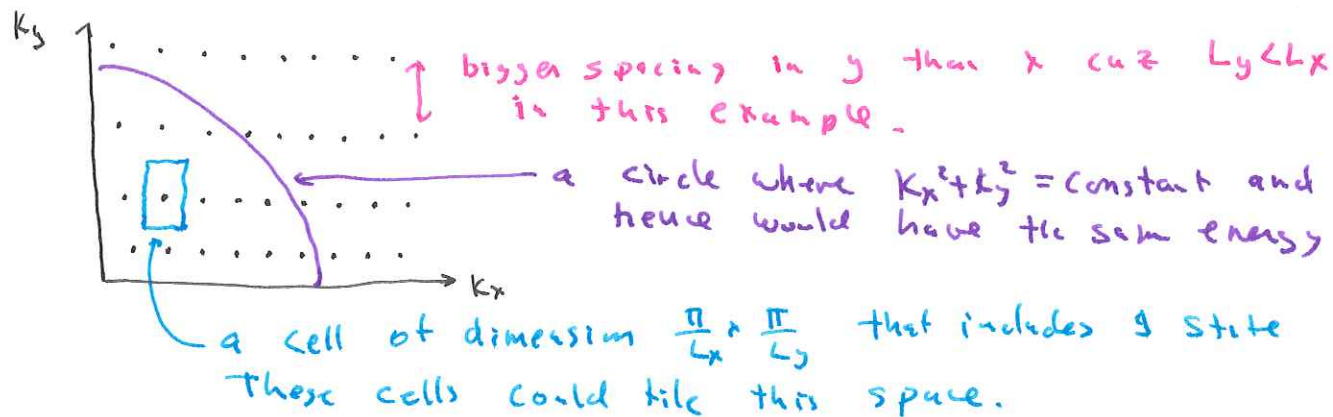 Ky
bigger spacing in y than x cuz Ly<Lx
in this example.
a circle where Kx²+ky² = constant and
hence would have the same energy
Kx
a cell of dimension π/Lx × π/Ly that includes 1 state
These cells could tile this space.